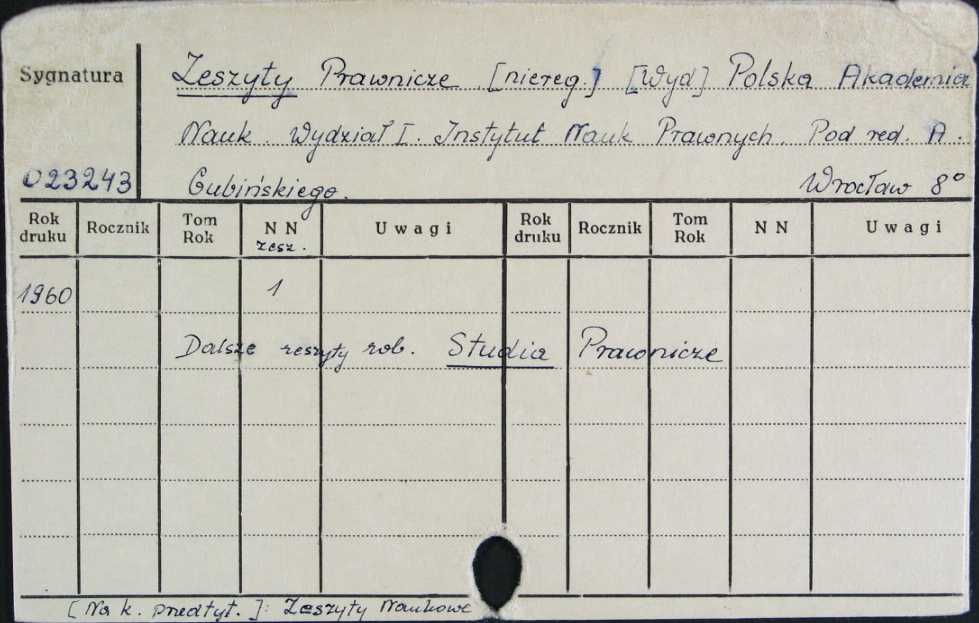 Sygnatura
Zeszyty Prawnicze [niereg.] [Wyd] Polska Akademia
Nauk. Wydział I. Instytut Nauk Prawnych. Pod red. A.
023243 Gubińskiego. Wrocław 8°
Rok druku Rocznik Tom Rok N N zesz. Uwagi Rok druku Rocznik Tom Rok N N Uwagi
1960 1
Dalsze zeszyty zob. Studia Prawnicze
[Na k. przedtyt.]: Zeszyty Naukowe